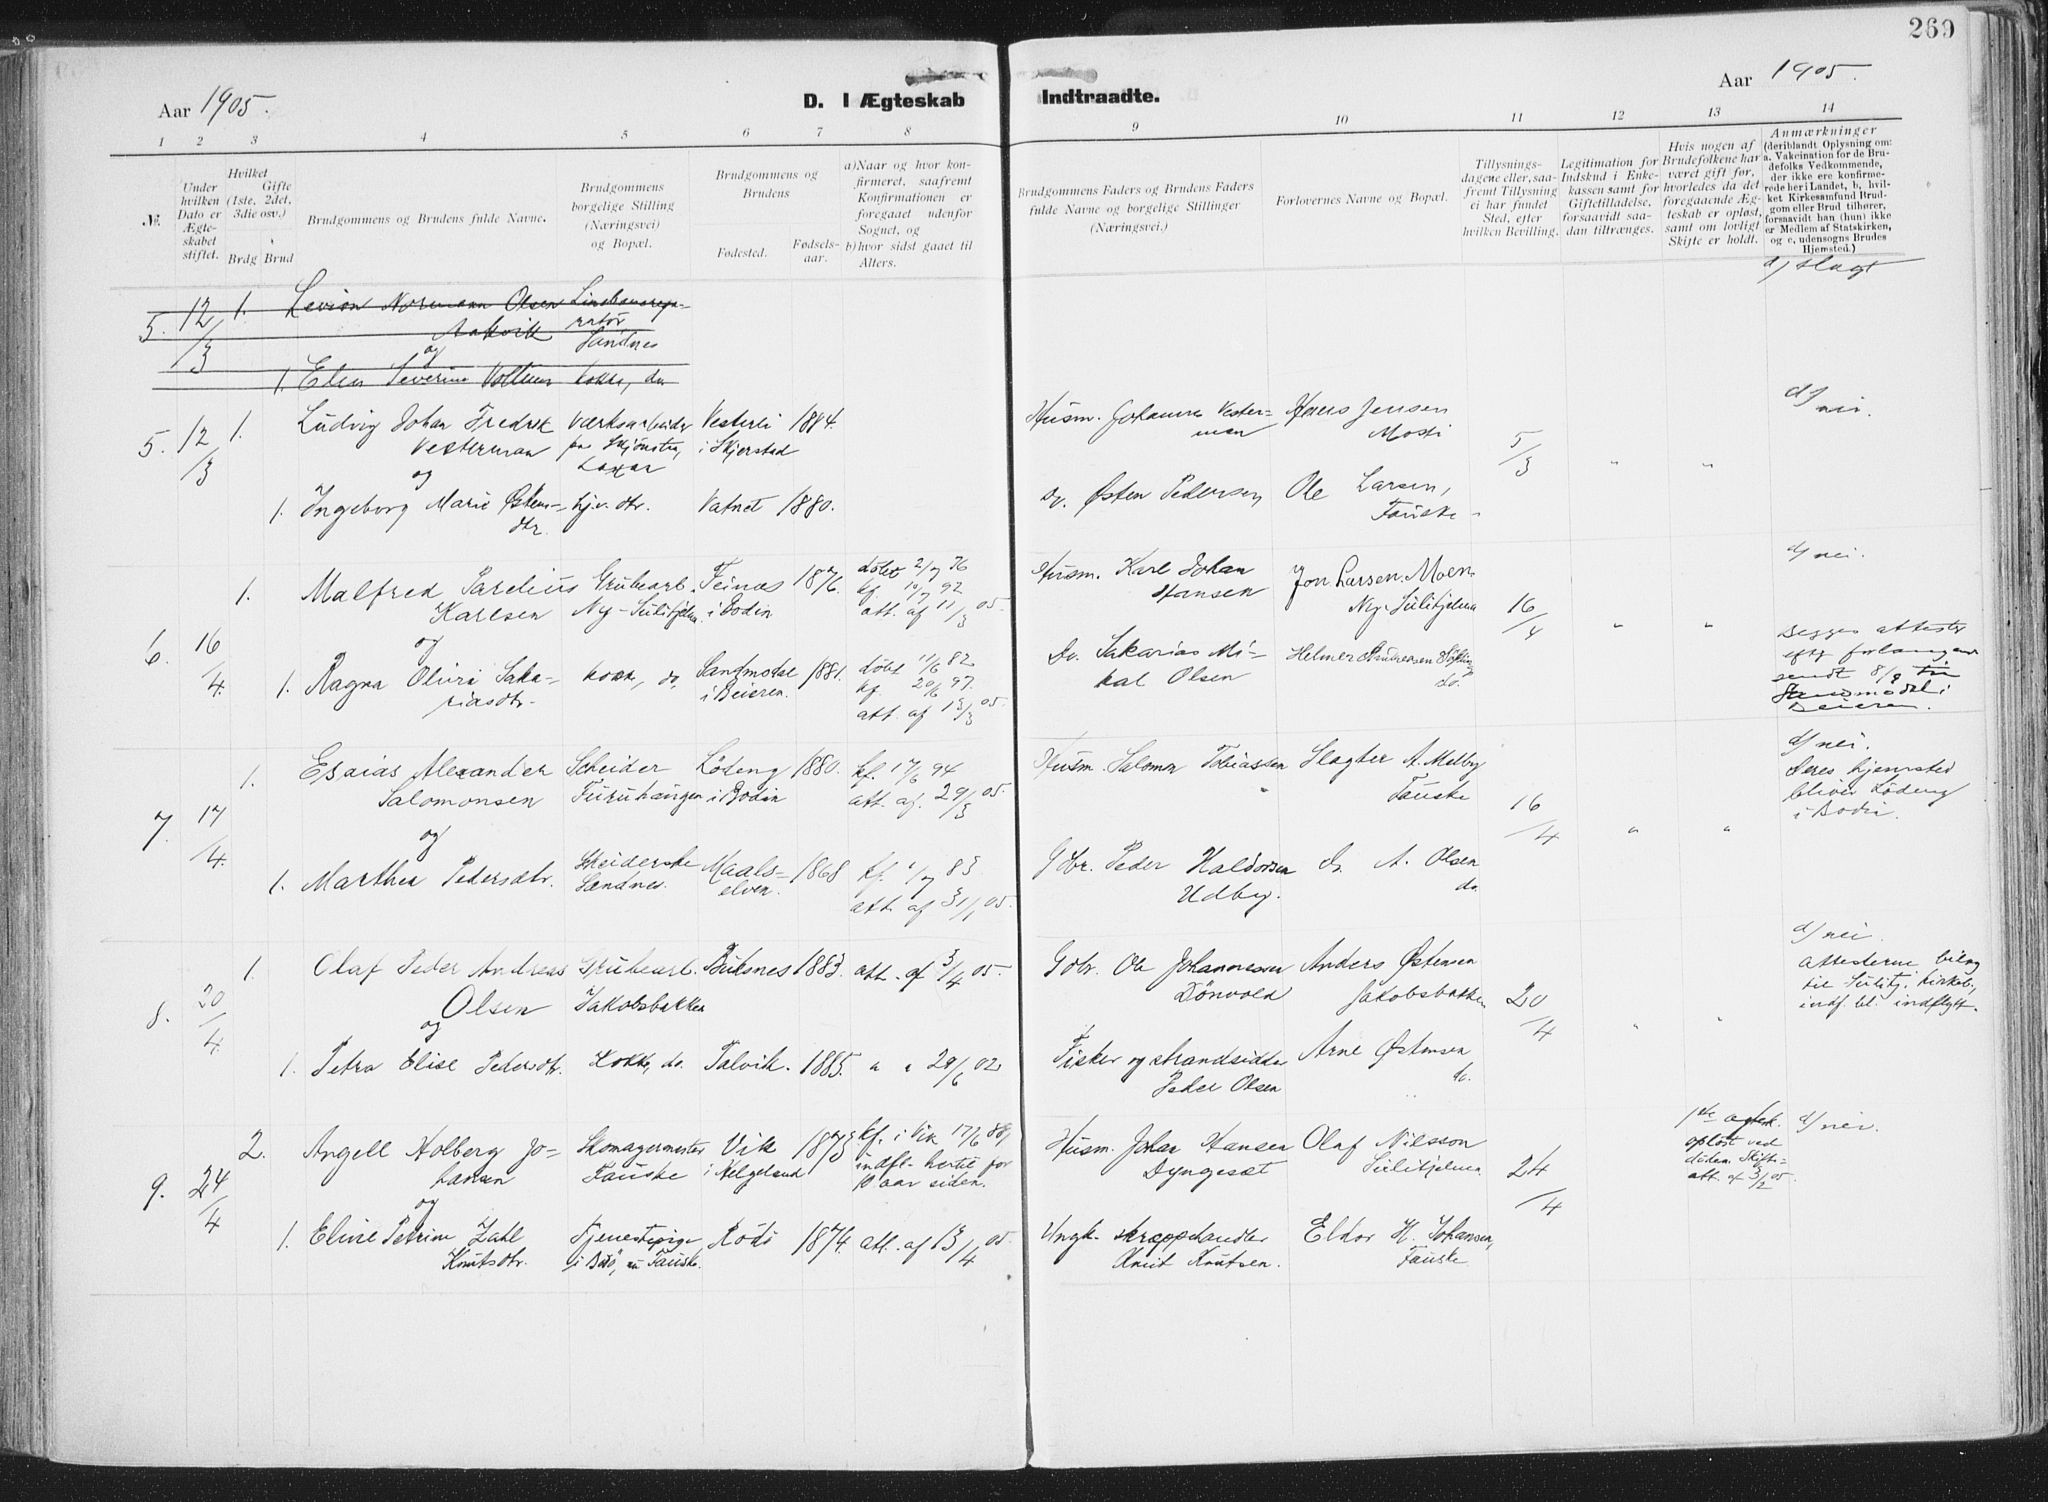 269
Aar 1905.
D. I Ægteskab Indtraadte.
Aar 1905.
1 2 3 4 5 6 7 8 9 10 11 12 13 14
№.
Under hvilken Dato er Ægteskabet stiftet.
Hvilket Gifte (1ste, 2det, 3die osv.)
Brdg Brud
Brudgommens og Brudens fulde Navne.
Brudgommens borgelige Stilling (Næringsvei) og Bopæl.
Brudgommens og Brudens
Fødested. Fødselsaar.
a) Naar og hvor konfirmeret, saafremt Konfirmationen er foregaaet udenfor Sognet, og
b) hvor sidst gaaet til Alters.
Brudgommens Faders og Brudens Faders fulde Navne og borgelige Stillinger (Næringsvei.)
Forlovernes Navne og Bopæl.
Tillysningsdagene eller, saafremt Tillysning ei har fundet Sted, efter hvilken Bevilling.
Legitimation for Indskud i Enkekassen samt for Giftetilladelse, forsaavidt saadan tiltrænges.
Hvis nogen af Brudefolkene har været gift før, hvorledes da det foregaaende Ægteskab er opløst, samt om lovligt Skifte er holdt.
Anmærkninger (deriblandt Oplysning om: a. Vakcination for de Brudefolks Vedkommende, der ikke ere konfirmerede her i Landet, b, hvilket Kirkesamfund Brudgom eller Brud tilhører, forsaavidt han (hun) ikke er Medlem af Statskirken, og c, udensogns Brudes Hjemsted.)
5. 12/3 1. Levion Normann Olsen
Aakvik Sandnes
og
1. Elen Severine
5. 12/3 1. Ludvig Johan Fredrik Værksarbeider Vesterli 1884.
Vesterman i Skjerstad
og
1. Ingeborg Marie Østens- hj.v. dtr. Vatnet 1880.
dtr.
Husm. Johannes Vester-
man
Hans Jensen
Mosti
5/3 " "
d/ nei.
Do. Østen Pedersen, Ole Larsen,
Fauske
6. 16/4. 1. Malfred Parelius Grubearb. Feines 1876. døbt 2/7 76
Karlsen Ny-Sulitjelma i Bodin
att. af 11/3 05.
og
1. Ragna Olivi Saka- kokke, do. Sandmodse 1881. døbt 11/6 82
riasdtr. i Beieren. kf. 20/6 97.
att. af 13/3 05.
Husm. Karl Johan Jon Larsen. Moen
Hansen Ny-Sulitjelma
16/4 " "
d/ nei.
Do. Sakarias Mi- Helmer
kal Olsen do.
Begges attester
efter forlangende
sendt 8/8
Beieren.
7. 17/4. 1. Esaias Alexander Scheider Løding 1880. kf. 17/6 94
Salomonsen Furuhaugen i Bodin att. af. 29/3 05.
og
1. Marthea Pedersdtr. Skeiderske Maals- 1868 kf. 1/7 83
Sandnes. elven. att. af 31/1 05.
Husm. Salomon Tobiassen Slagter A. Melby
" Fauske
16/4 " "
d/ nei.
Deres hjemsted
bliver Løding
i Bodin.
Gbr. Peder Haldorsen A. Olsen
Udby. do.
8. 20/4. 1. Olaf Peder Andreas Grubearb. Buksnes 1883. att. af 3/4 05.
Olsen Jakobsbakken
og
1. Petra Elise Pedersdtr. Kokke, do. Palvik. 1885. " " 29/6 02
Gbr. Ole Johannessen Anders Østensen
Dønvold Jakobsbakken
20/4 " "
d/ nei.
attesterne bilag
til Sulitj. kirkeb.,
indf. bl. indflytt.
Fisker og strandsidder Arne Østensen
Peder Olsen do.
9. 24/4 2. Angell Holberg Jo- Skomagermester Vik 1873 kf. i Vik 17/6 88,
hansen Fauske i Helgeland indfl. hertil for
10 aar siden.
og
1. Elvine Petrine Zahl Tjenestepige Rødø 1874. att. af 13/4 05.
Knutsdtr. i Bodø, nu Fauske.
Husm. Johan Hansen Olaf Nilsson
Dyngesæt Sulitjelma
24/4
1ste ægtesk.
opløst ved
døden. Skifte-
att. af 3/2 05.
d/ nei.
Ungk. skraphandler Eldor H. Johansen,
Knut Knutsen. Fauske